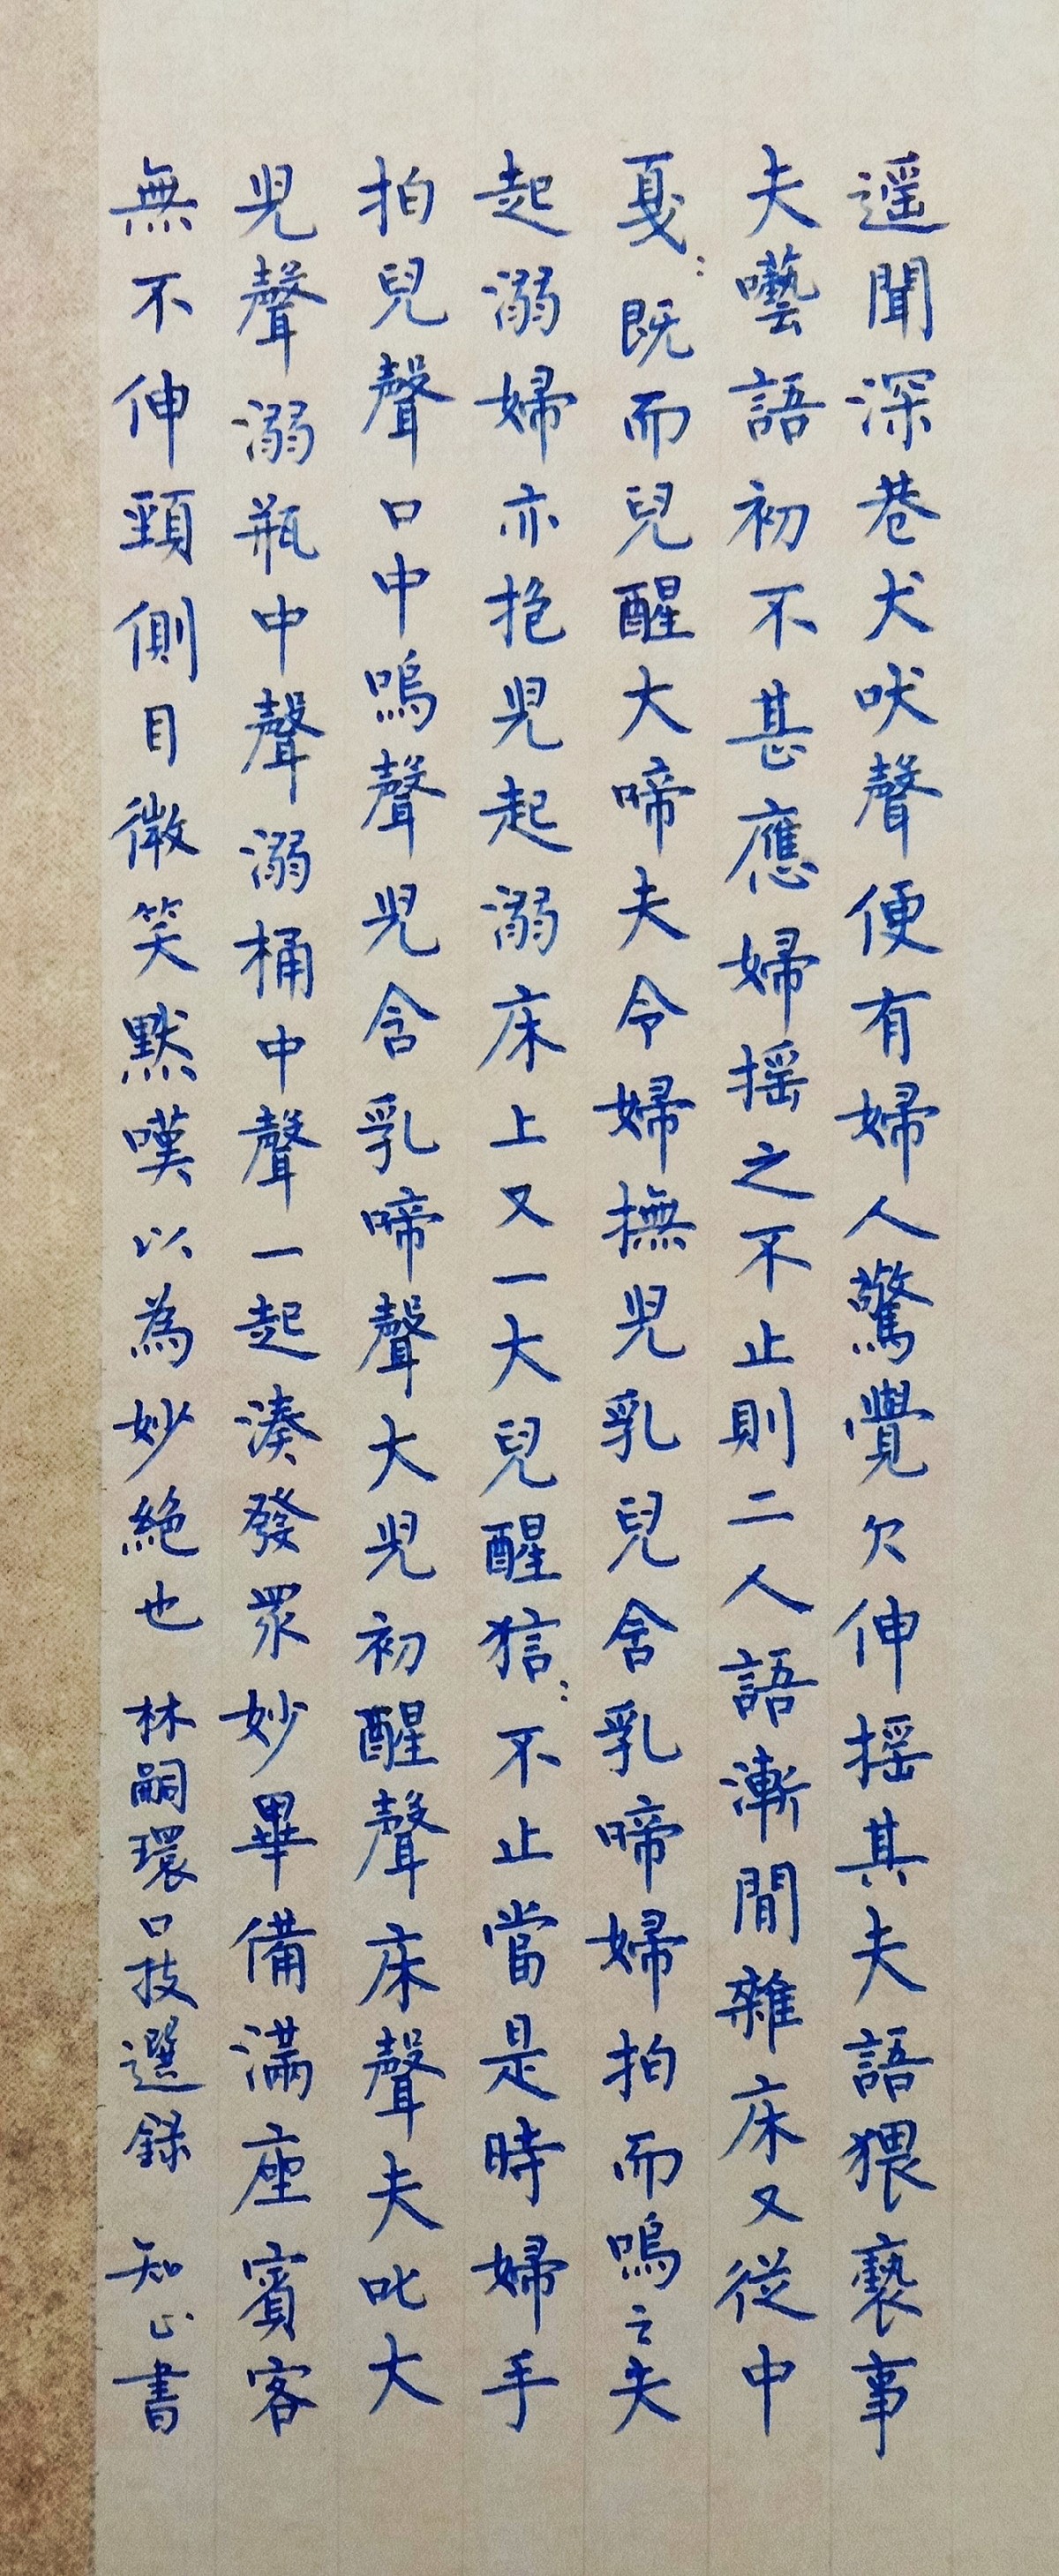 遥聞深巷犬吠聲便有婦人驚覺欠伸摇其夫語猥褻事
夫囈語初不甚應婦摇之不止則二人語漸間雜床又從中
戛:既而兒醒大啼夫令婦撫兒乳兒含乳啼婦拍而嗚之夫
起溺婦亦抱兒起溺床上又一大兒醒狺:不止當是時婦手
拍兒聲口中嗚聲兒含乳啼聲大兒初醒聲床聲夫叱大
兒聲溺瓶中聲溺桶中聲一起湊發眾妙畢備滿座賓客
無不伸頸側目微笑默嘆以為妙絶也 林嗣環口技選錄 知止書